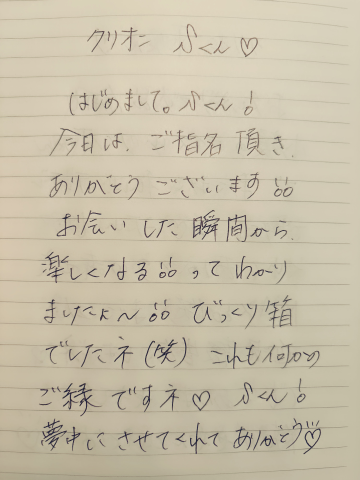 クリオネ Sくん♡
はじめまして。Sくん!
今日は、ご指名頂き、
ありがとう ございます!!
お会い した 瞬間から、
楽しくなる!! って わかり
ましたょ〜!! びっくり箱
でしたネ(笑) これも何かの
ご縁ですネ♡ Sくん!
夢中に させてくれて ありがとう!!♡